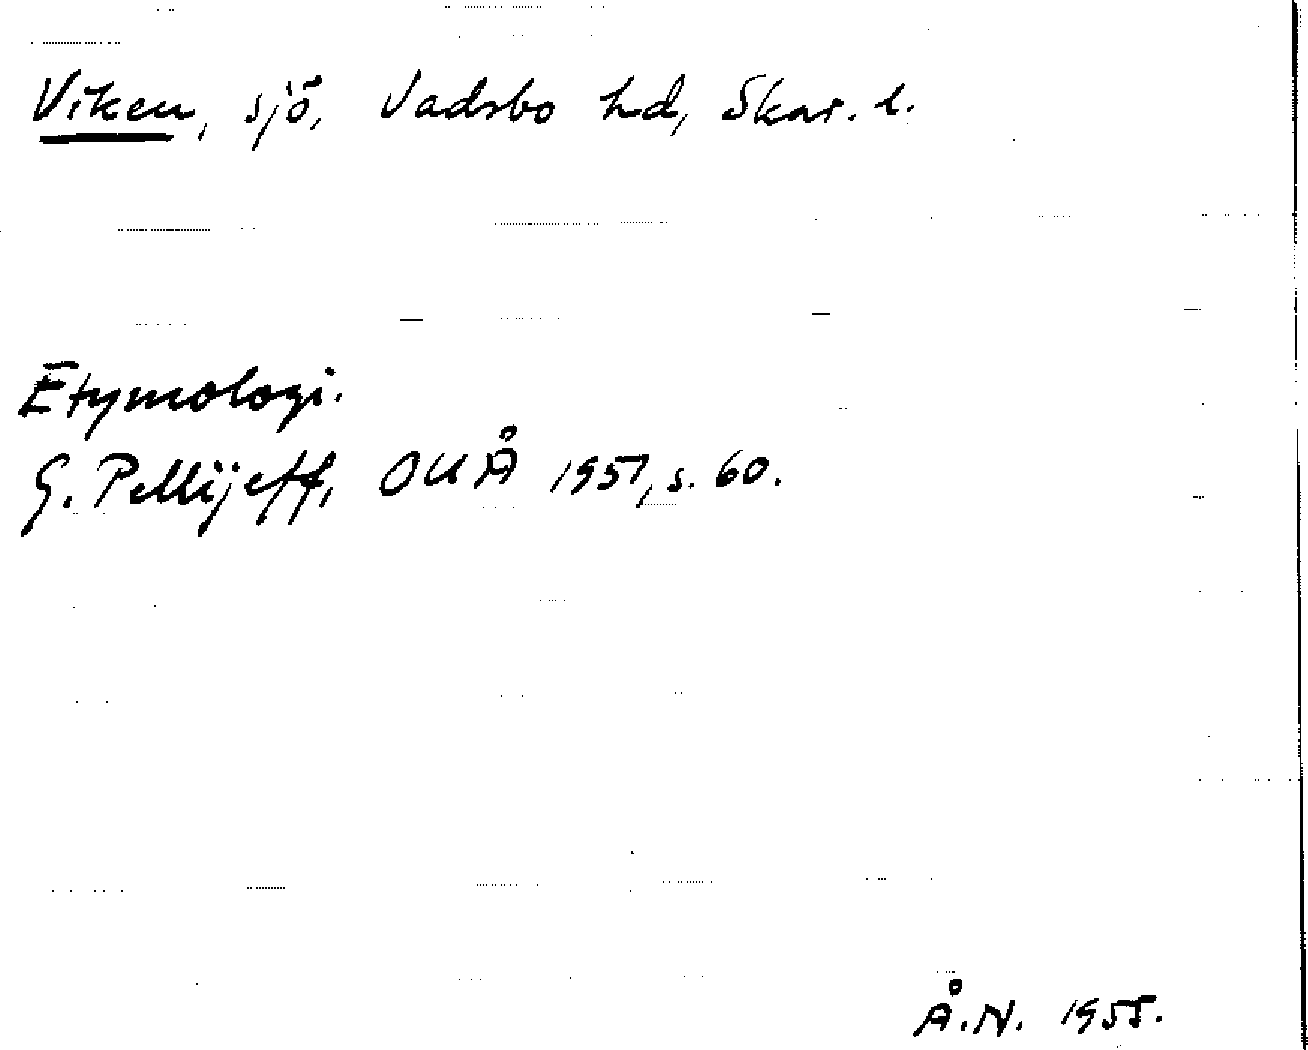 Viken, sjö, Vadsbo hd, Skar. l.
Etymologi.
G. Pellijeff, OUÅ 1951, s. 60.
Å.N. 1955.